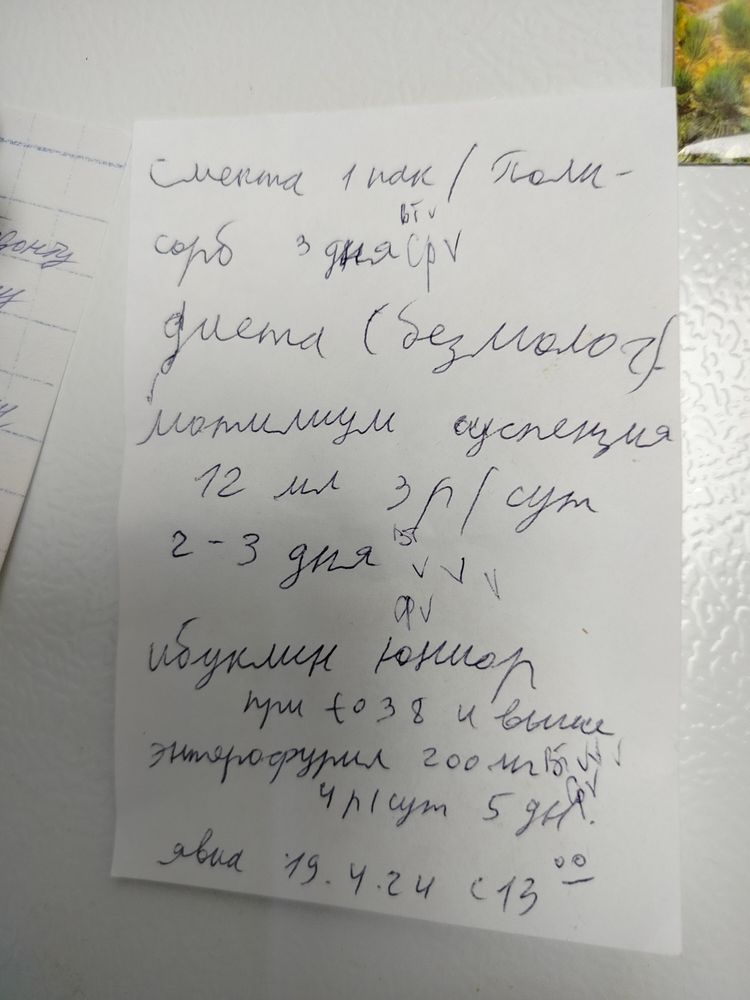 донту
смекта 1 пак / Поли-
вт v
сорб 3 дня ср v
диета (безмолоч).
мотилиум суспензия
12 мл 3 р/сут
2-3 дня вт v v v
ср v
ибуклин юниор
при t о 38 и выше
энтерофурил 200 мг вт v v v
ср v
4 р/сут 5 дн.
явка 19.4.24 с 13 00